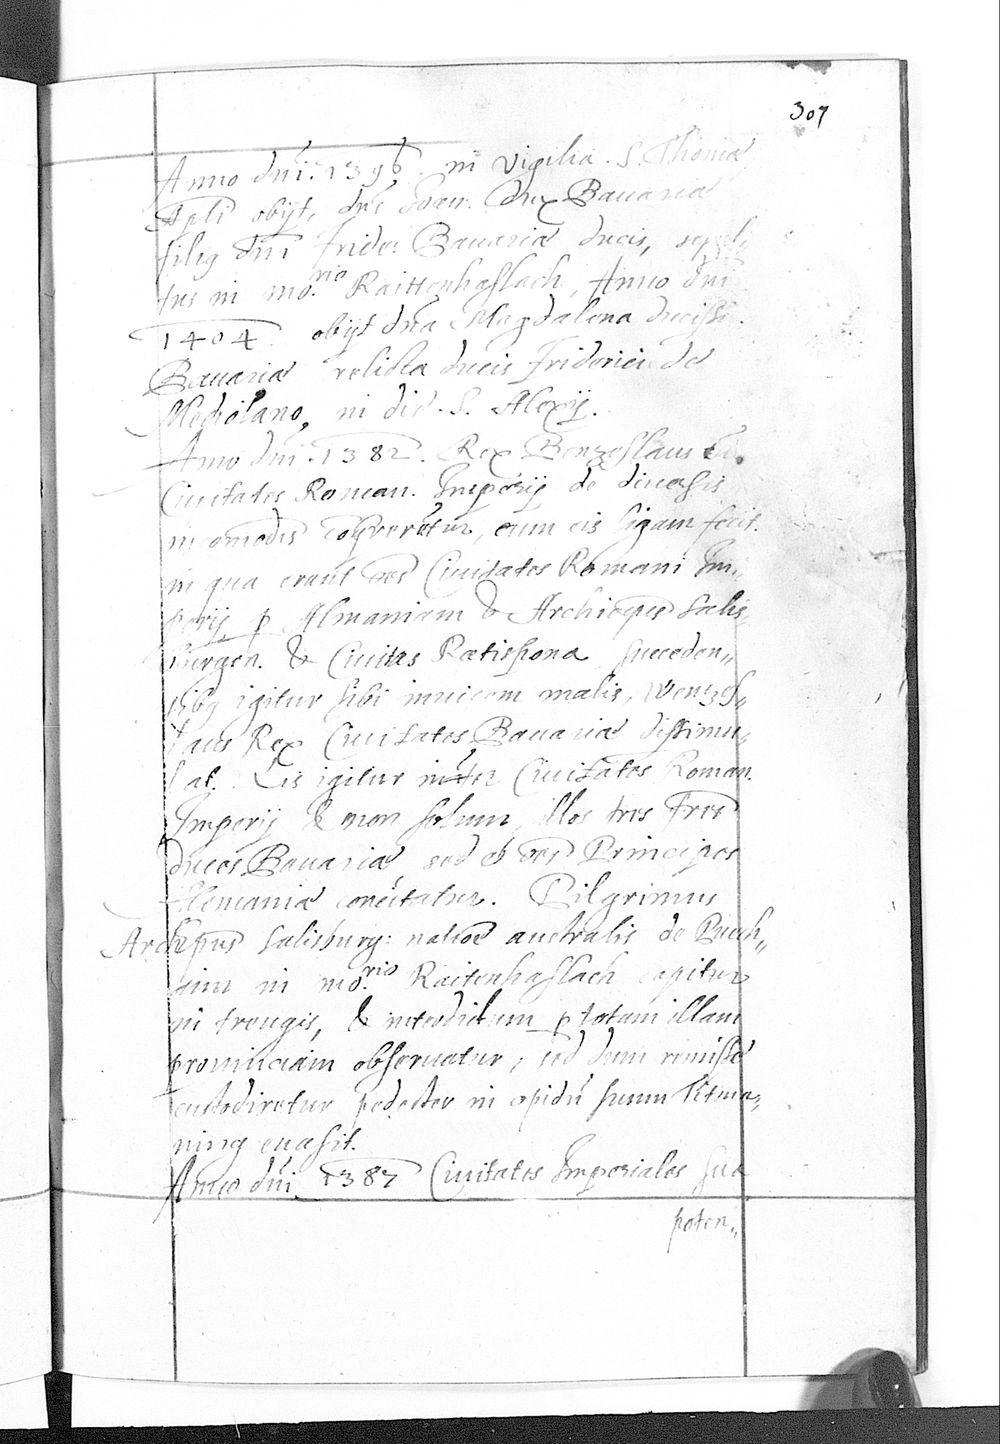 307
Anno dni: 1396 in vigilia S. Thomæ
Apli obijt, dns Joan. Dux Bavariæ
filiq dni Fride: Bavariæ ducis, sepul„
tus in mo:rio Raittenhaslach, Anno dni
1404. obijt dna Magdalena ducissa
Bavariæ relicta ducis Friderici de
Mediolano, in die S. Alexij.
Anno dni 1382. Rex Benzeslaus
Civitates Roman. Imperij de diversis
in eum eis ligam fecit.
in qua erant oes Civitates Romani Im„
perij p Almaniam & Archiepus Salis„
burgen. & Civitas Ratispona, Succeden„
tibq igitur sibi invicem malis, Wenzes„
laus Rex Civitates Bavariæ dissimu„
lat. Lis igitur inter Civitates Roman.
Imperij & non solum illos tres Fres
duces Bavariæ sed et oes Principes
Alemaniæ concitatur. Pilgrimus
Archiepus Salisburg: natioe australis de Puech„
aim in mo:rio Raitenhaslach capitur
in treugis, & interdictum p totam illam
provinciam observatur; sed dum remisse
custodiretur pedester in opidu suum Titma„
ning evasit.
Anno dni 1387 Civitates Imperiales sua
poten„